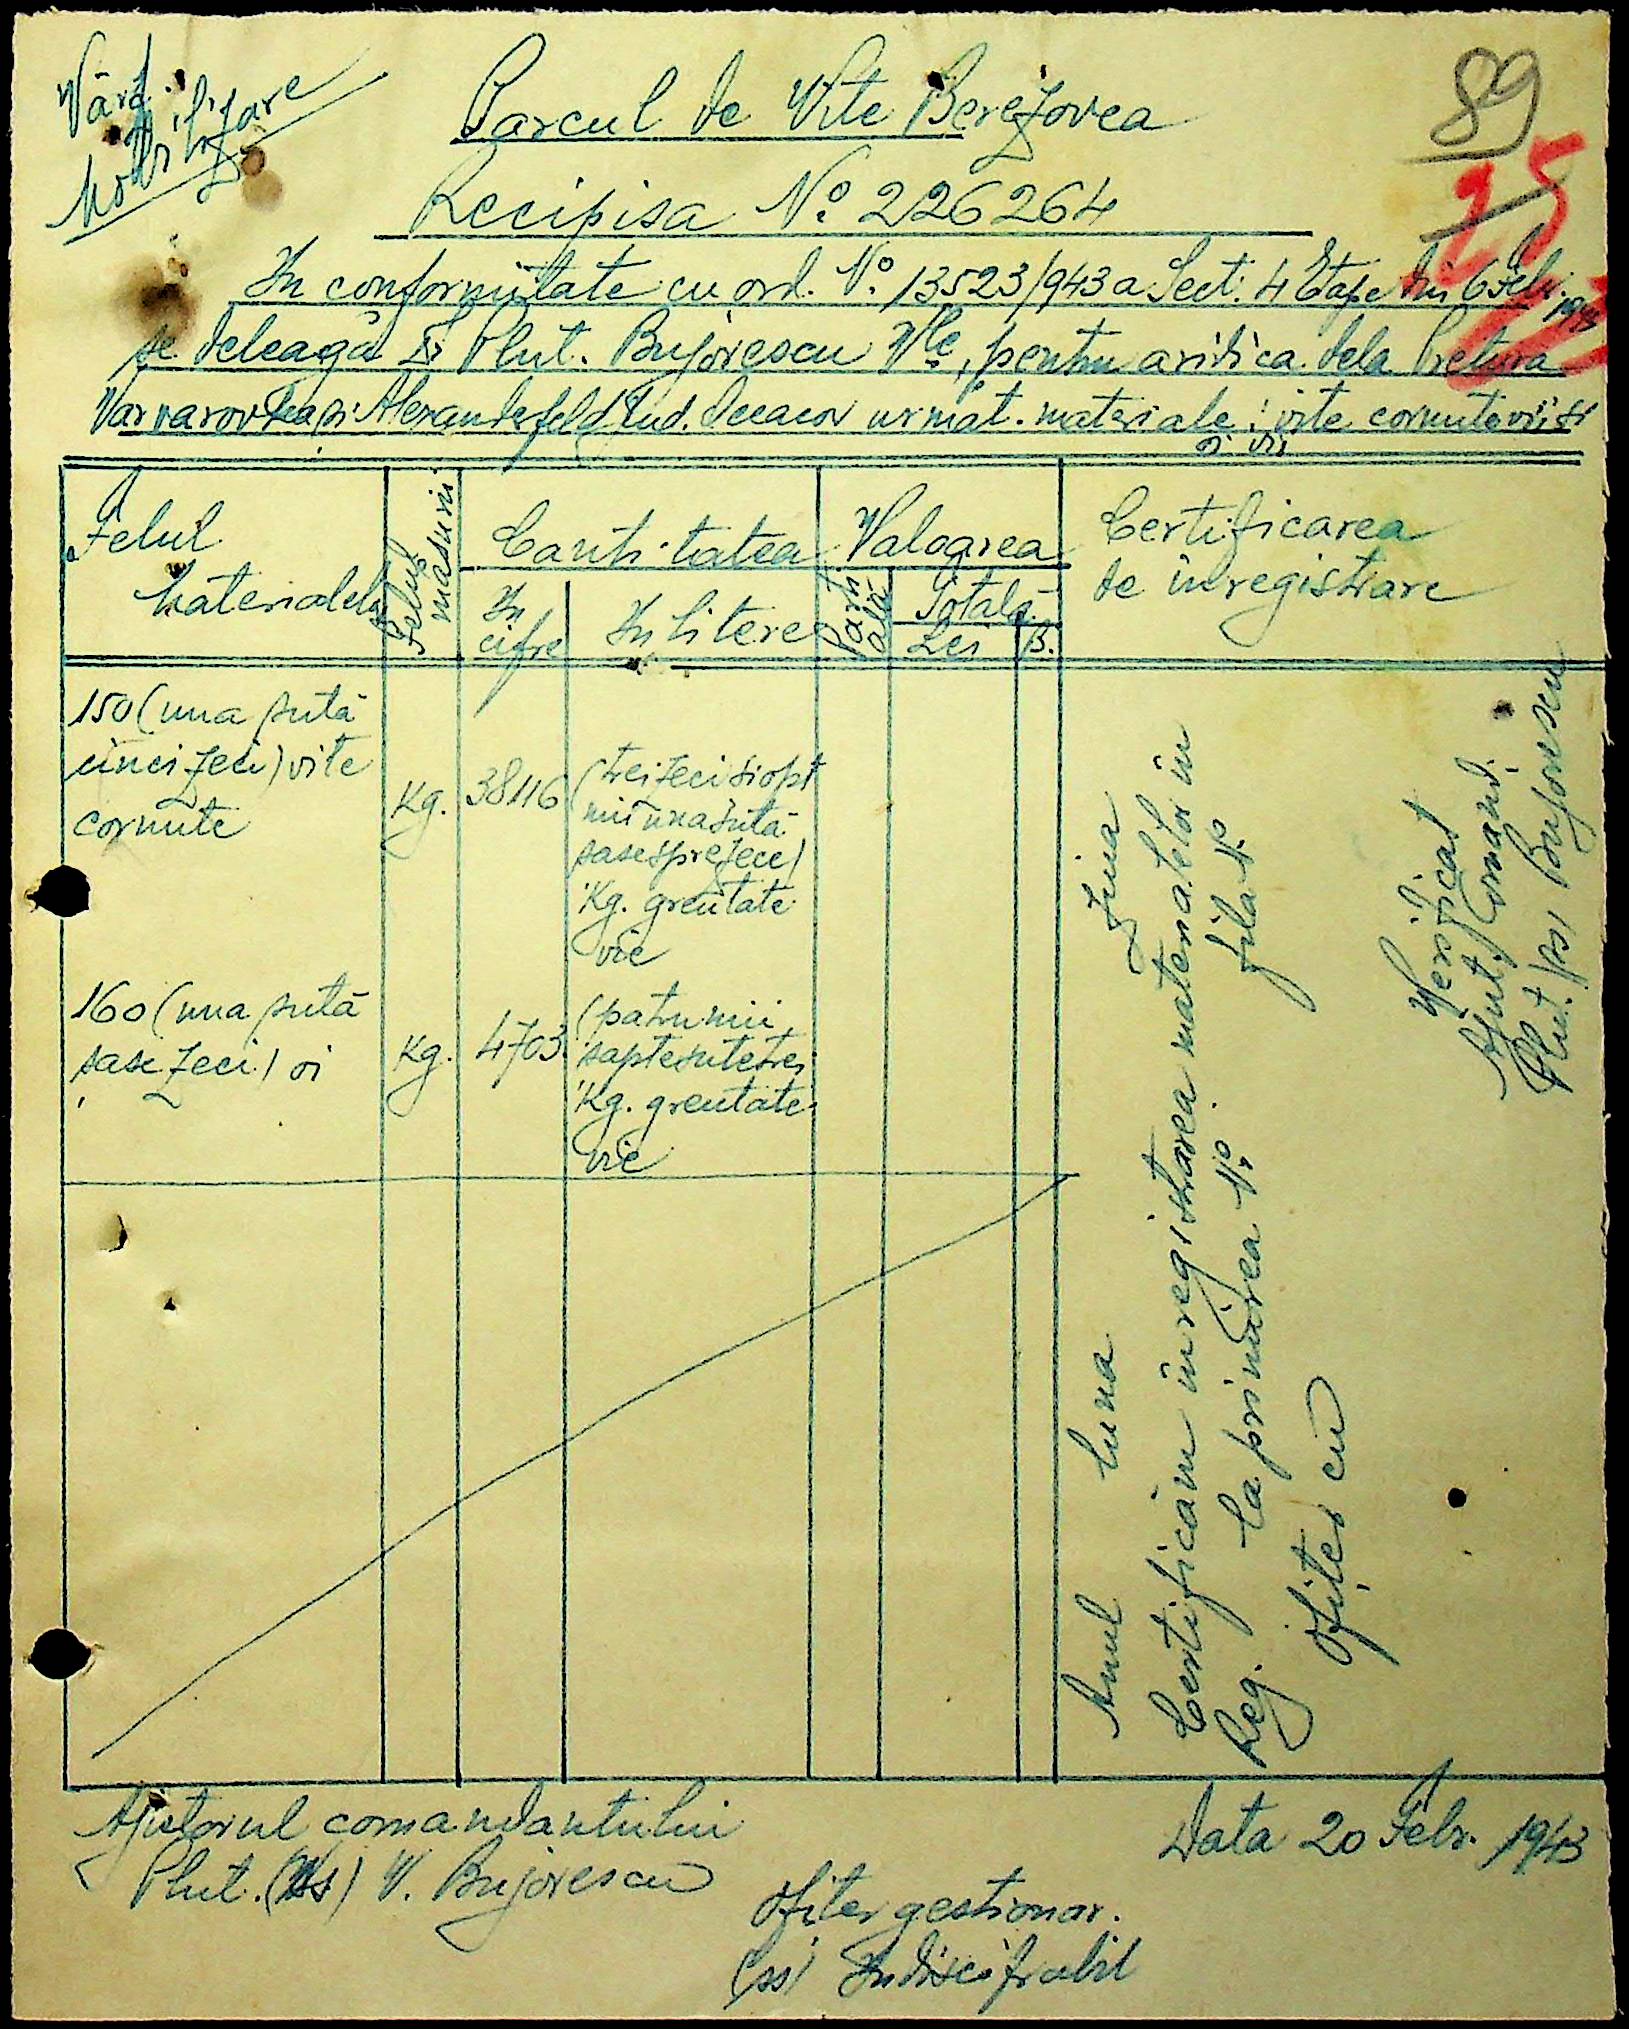 Vărs.
Mobilizare
89
25
Parcul de Vite Berezovca
Recipisa No. 226264
In conformitate cu ord. No. 13523/943 a Sect. 4 Etape din 6 Febr. 1943
se deleagă Plut. Bujorescu Vle, pentru a ridica dela Pretura
Varvarovka și Alexanderfeld Jud. Oceacov următ. materiale: vite cornute vii și
oi vii
Felul
Materialelor
Felul măsurii
Cantitatea
In cifre
In litere
Valoarea
Parțială
Totală
Lei
B.
Certificarea
de înregistrare
150 (una sută
cinci zeci) vite
cornute
Kg.
38116
(treizeci și opt
mii una sută
sasesprezece)
Kg. greutate
vie
160 (una sută
șase zeci) oi
Kg.
4703
(patru mii
șapte sute trei
Kg. greutate
vie
Anul luna ziua
Certificăm înregistrarea materialelor în
Reg. la primirea No. fila No.
Ofițer cu
Verificat
Ajut. Comand.
Plut. (ss) Bujorescu
Ajutorul comandantului
Plut. (ss) V. Bujorescu
Data 20 Febr. 1943
Ofiter gestionar.
(ss) Indiscifrabil